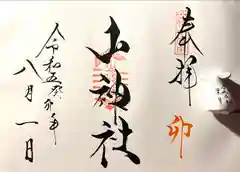 奉拝
卯
山神社
令和五癸卯年
八月一日